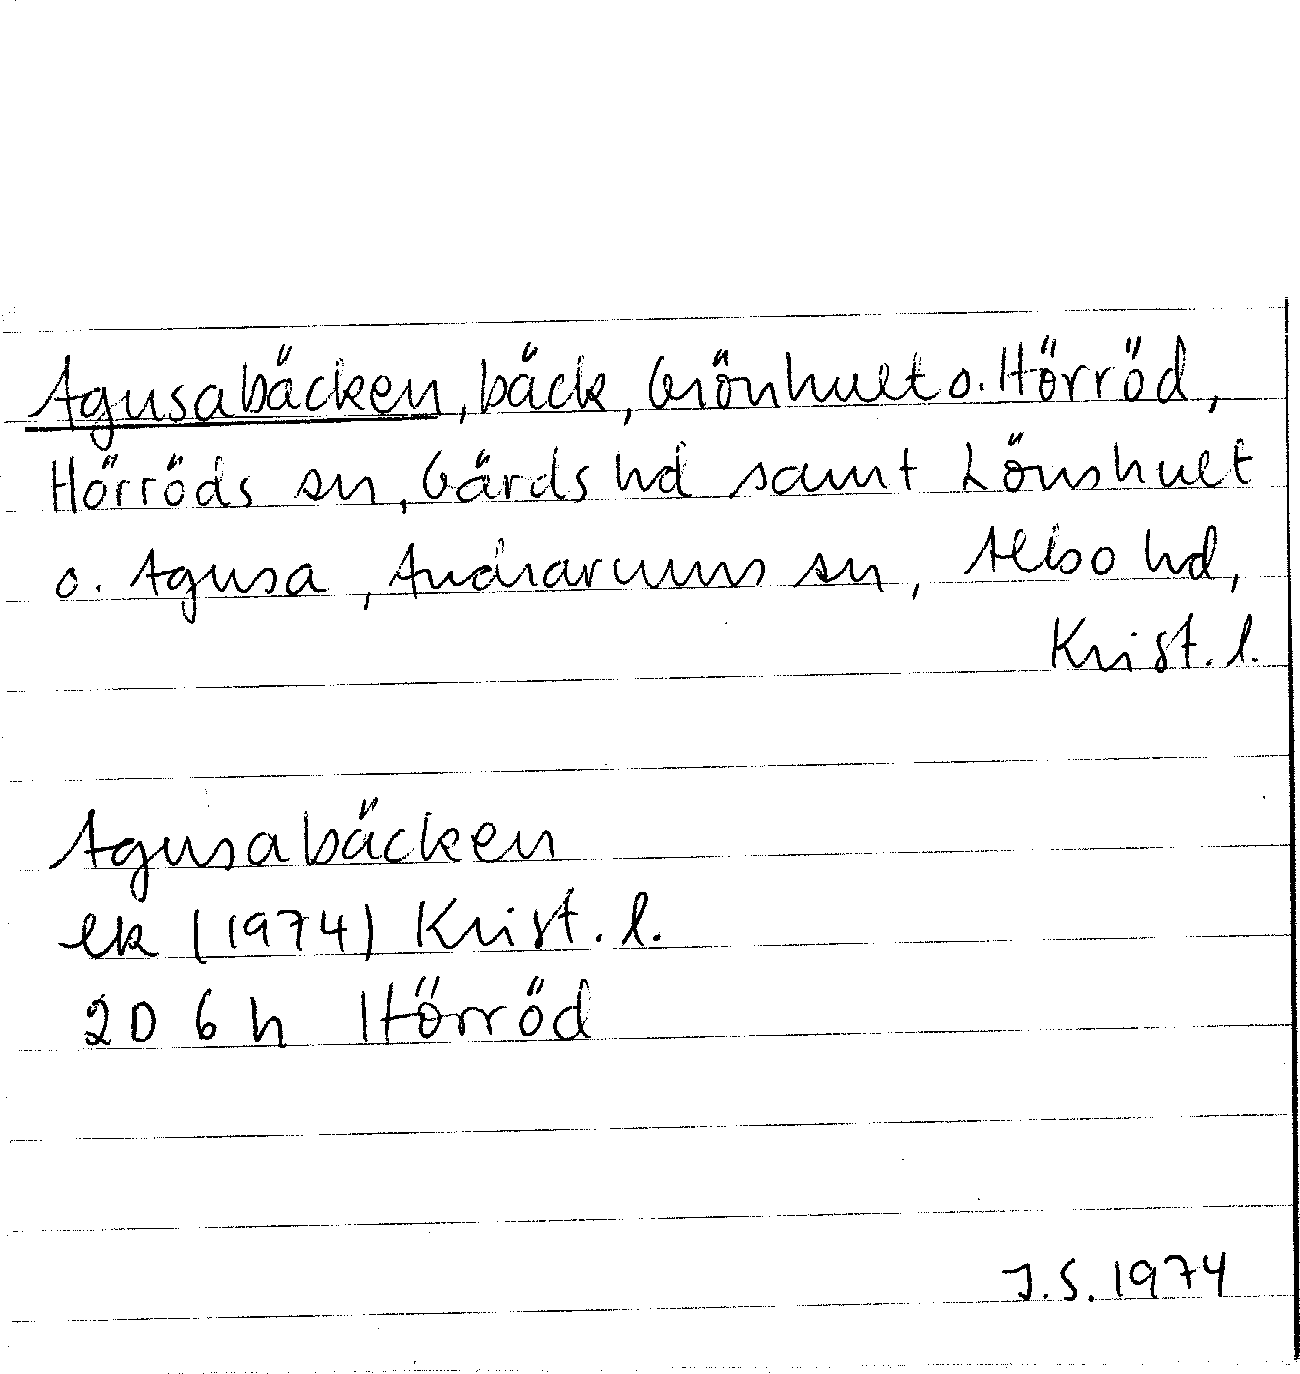 Agusabäcken, bäck, Grönhult o. Hörröd,
Hörröds sn, Gärds hd samt Lönshult
o. Agusa, Andrarums sn, Albo hd,
Krist. l.
Agusabäcken
ek (1974) Krist. l.
2D 6h Hörröd
J.S. 1974